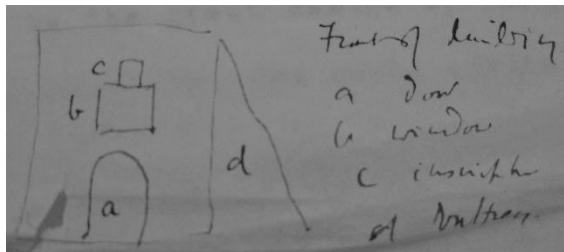 Front of building
a door
b window
c inscription
d buttress
c
b
a
d